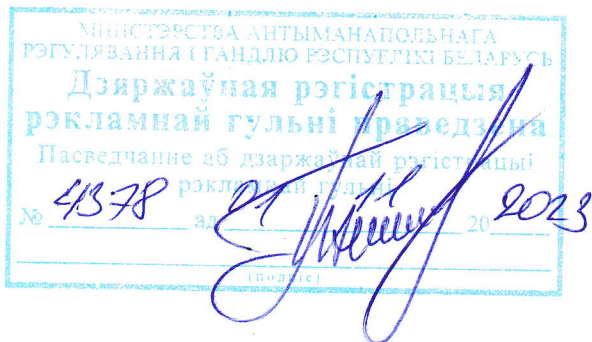 МІНІСТЭРСТВА АНТЫМАНАПОЛЬНАГА
РЭГУЛЯВАННЯ І ГАНДЛЮ РЭСПУБЛІКІ БЕЛАРУСЬ
Дзяржаўная рэгістрацыя
рэкламнай гульні праведзена
Пасведчанне аб дзяржаўнай рэгістрацыі
рэкламнай гульні
№ 4378 ад 21 11 20 2023
(подпіс)